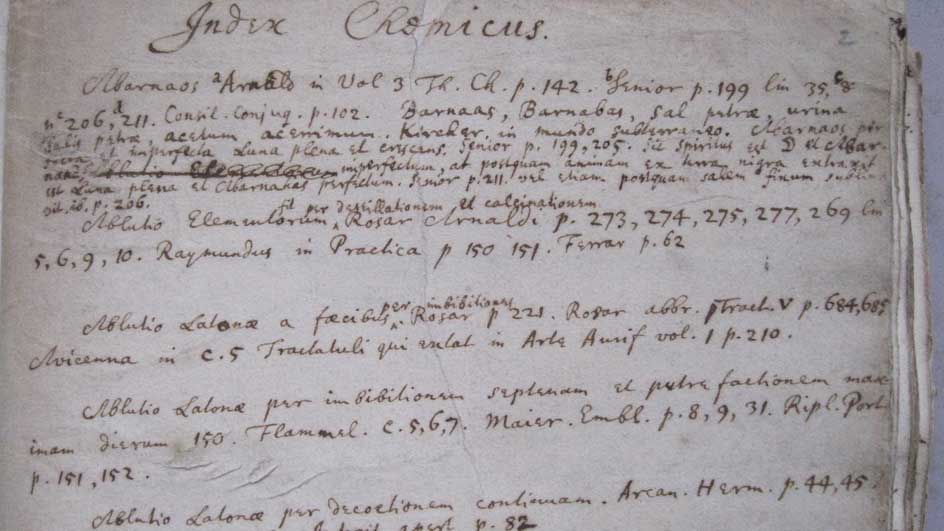 Index Chemicus.
2
Abarnaos ᵃArnald in Vol 3 Th. Ch. p. 142. ᵇSenior p. 199 lin 35, ᶜ&
n 206, ᵈ211. Consil. Conjug. p. 102. Barnaas, Barnabas, sal petræ, urina
salis petræ, acetum acerrimum. Kircher. in mundo subterraneo. Abarnaos per
et imperfecta Luna plena et crescens. Senior p. 199, 205. Sic spiritus est et Abar-
nahas imperfectum, at postquam animam ex terra nigra extraxit
est Luna plena et Abarnahas perfectum. Senior p. 211. vel etiam postquam salem finum sublima
vit, ib. p. 206.
fit per destillationem et calcinationem
Ablutio Elementorum ‸ Rosar Arnaldi p. 273, 274, 275, 277, 269 lin
5, 6, 9, 10. Raymundus in Practica p 150 151. Ferrar p. 62
per imbibitiones
Ablutio Latonæ a fæcibus ‸ Rosar p 221. Rosar abbr. Tract. V p. 684, 685
Avicenna in c. 5 Tractatuli qui extat in Arte Aurif vol. 1 p. 210.
Ablutio Latonæ per imbibitionem septenam et putrefactionem max
imam dierum 150. Flammel. c. 5, 6, 7. Maier. Embl. p. 8, 9, 31. Ripl. Port.
p. 151, 152.
Ablutio Latonæ per decoctionem continuam. Arcan. Herm. p. 44, 45.
Introit apert p. 82